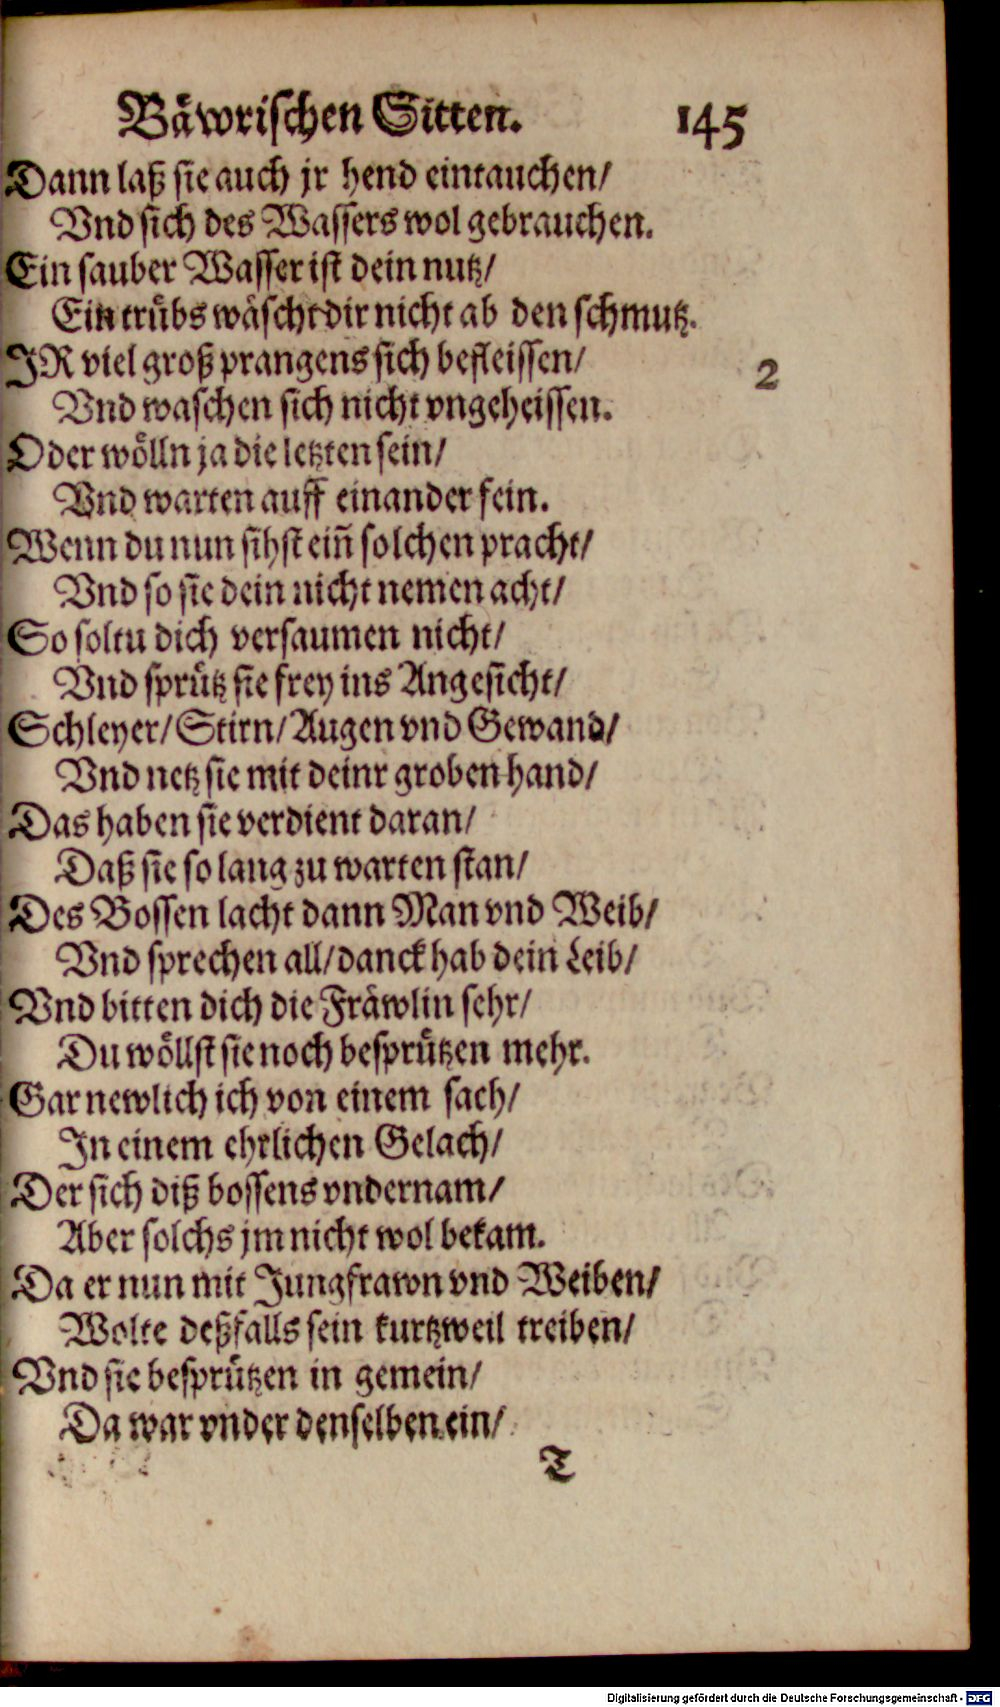 Bäwrischen Sitten. 145
Dann laß sie auch jr hend eintauchen/
Vnd sich des Wassers wol gebrauchen.
Ein sauber Wasser ist dein nutz/
Ein trübs wäscht dir nicht ab den schmutz.
IR viel groß prangens sich befleissen/ 2
Vnd waschen sich nicht vngeheissen.
Oder wölln ja die letzten sein/
Vnd warten auff einander fein.
Wenn du nun sihst ein̄ solchen pracht/
Vnd so sie dein nicht nemen acht/
So soltu dich versaumen nicht/
Vnd sprütz sie frey ins Angesicht/
Schleyer/ Stirn/ Augen vnd Gewand/
Vnd netz sie mit deinr groben hand/
Das haben sie verdient daran/
Daß sie so lang zu warten stan/
Des Bossen lacht dann Man vnd Weib/
Vnd sprechen all/ danck hab dein Leib/
Vnd bitten dich die Fräwlin sehr/
Du wöllst sie noch besprützen mehr.
Gar newlich ich von einem sach/
In einem ehrlichen Gelach/
Der sich diß bossens vndernam/
Aber solchs jm nicht wol bekam.
Da er nun mit Jungfrawn vnd Weiben/
Wolte deßfalls sein kurtzweil treiben/
Vnd sie besprützen in gemein/
Da war vnder denselben ein/
T
Digitalisierung gefördert durch die Deutsche Forschungsgemeinschaft - DFG